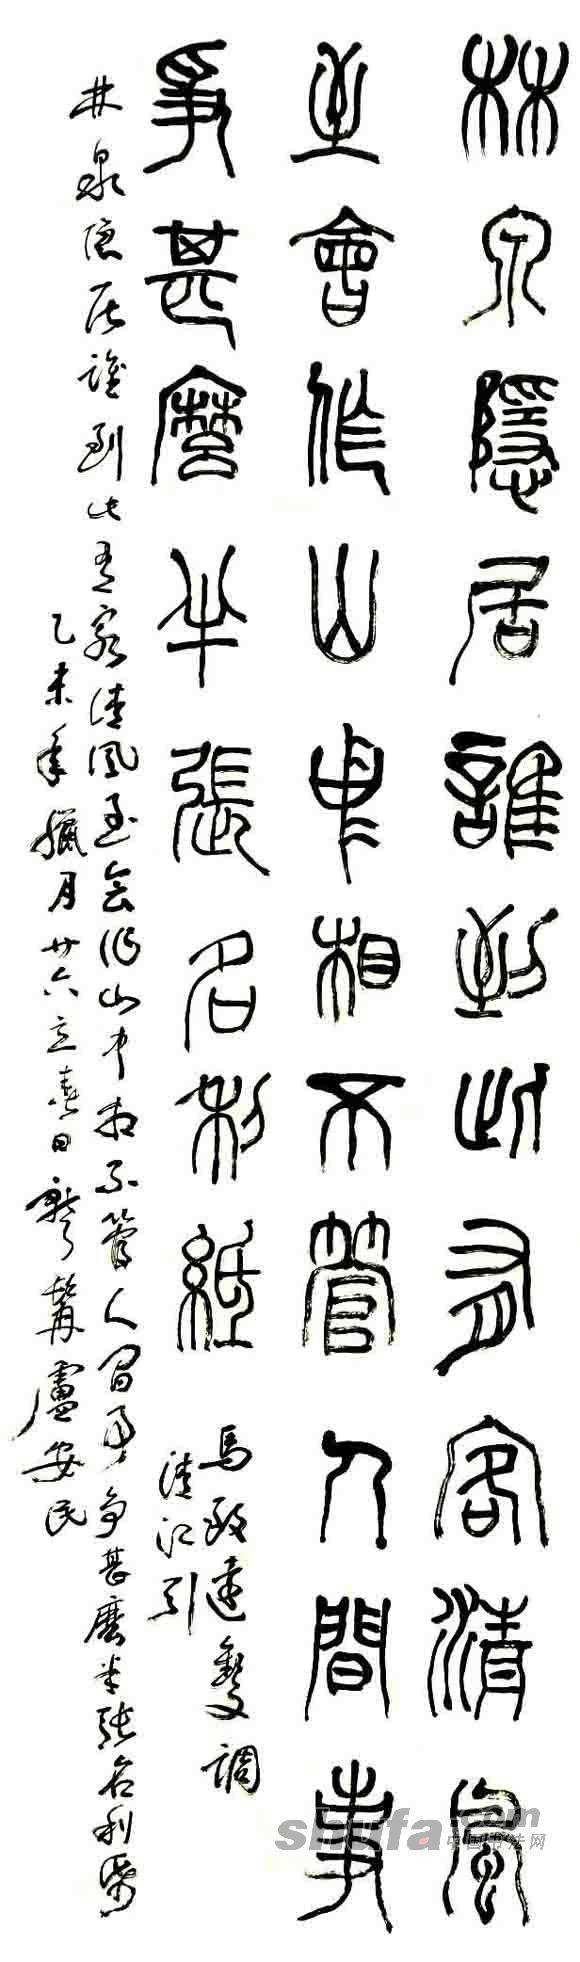 林泉隱居誰到此有客清風
至會作山中相不管人間事
爭甚麼半張名利紙
馬致遠雙調
清江引
林泉隱居誰到此有客清風至會作山中相不管人間事爭甚麼半張名利紙
乙未年臘月廿六立春日髯廬安民
shufa.com
中国书法网